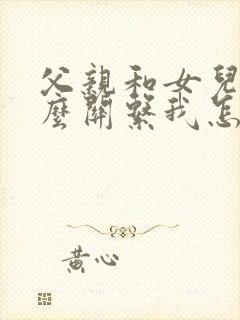 父親和女兒
麼關繫我怎
黃心